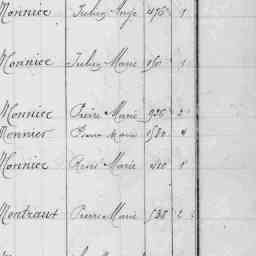 Monnier Julien Ange 476 1
Monnier Julien Marie 151 1
Monnier Pierre Marie 936 2
Monnier Marie 1580 4
Monnier René Marie 410 8
Montraut Pierre Marie 538 2